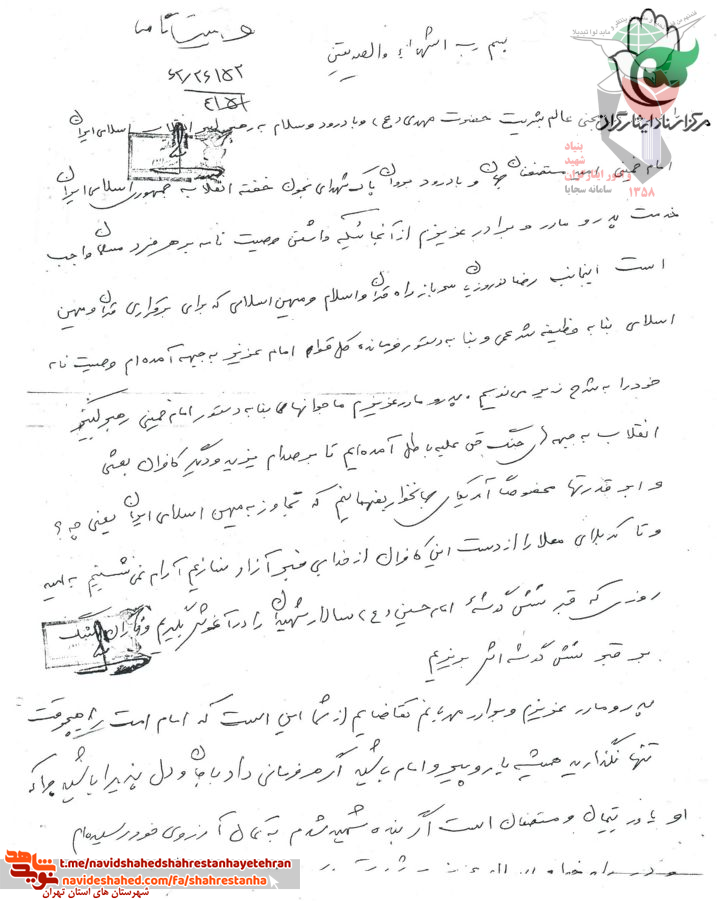 وصیت نامه
بسم رب الشهداء والصدیقین
مرکز اسناد ایثارگران
بنیاد
شهید
و امور ایثارگران
سامانه سجایا
۱۳۵۸
منجی عالم بشریت حضرت مهدی (عج) و با درود و سلام به رهبر کبیر انقلاب اسلامی ایران
امام خمینی امید مستضعفان جهان و با درود بروان پاک شهدای بخون خفته انقلاب جمهوری اسلامی ایران
خدمت پدر و مادر و برادر عزیزم از آنجائیکه داشتن وصیت نامه بر هر فرد مسلمان واجب
است اینجانب رضا نوروزیان سرباز راه قرآن و اسلام و میهن اسلامی که برای برقراری قرآن و میهن
اسلامی بنا به وظیفه شرعی و بنا به دستور فرمانده کل قوا امام عزیز به جبهه آمده ام وصیت نامه
خود را به شرح زیر می نویسم. پدر و مادر عزیزم ما جوانها بنا به دستور امام خمینی رهبر کبیر
انقلاب به جبهه جنگ حق علیه باطل آمده ایم تا بر صدام یزید و دیگر کافران بعثی
و ابر قدرتها مخصوصاً آمریکای جهانخوار بفهمانیم که تجاوز به میهن اسلامی ایران یعنی چه؟
و تا کربلای معلا را از دست این کافران از خدا بی خبر آزاد نسازیم آرام نمی نشینیم به امید
روزی که قبر شش گوشه امام حسین (ع) سالار شهیدان را در آغوش بگیریم و اشک
بر قبر شش گوشه اش بریزیم
پدر و مادر عزیزم و برادر مهربانم تقاضایم از شما این است که امام امت را هیچوقت
تنها نگذارید همیشه یار و پیرو امام باشید اگر هر فرمانی داد با جان و دل پذیرا باشید چرا که
او یاور یتیمان و مستضعفان است اگر بنده شهید شدم به تمام آرزوی خود رسیده ام
شاهد نوید
t.me/navidshahedshahrestanhayetehran
navideshahed.com/fa/shahrestanha
شهرستان های استان تهران